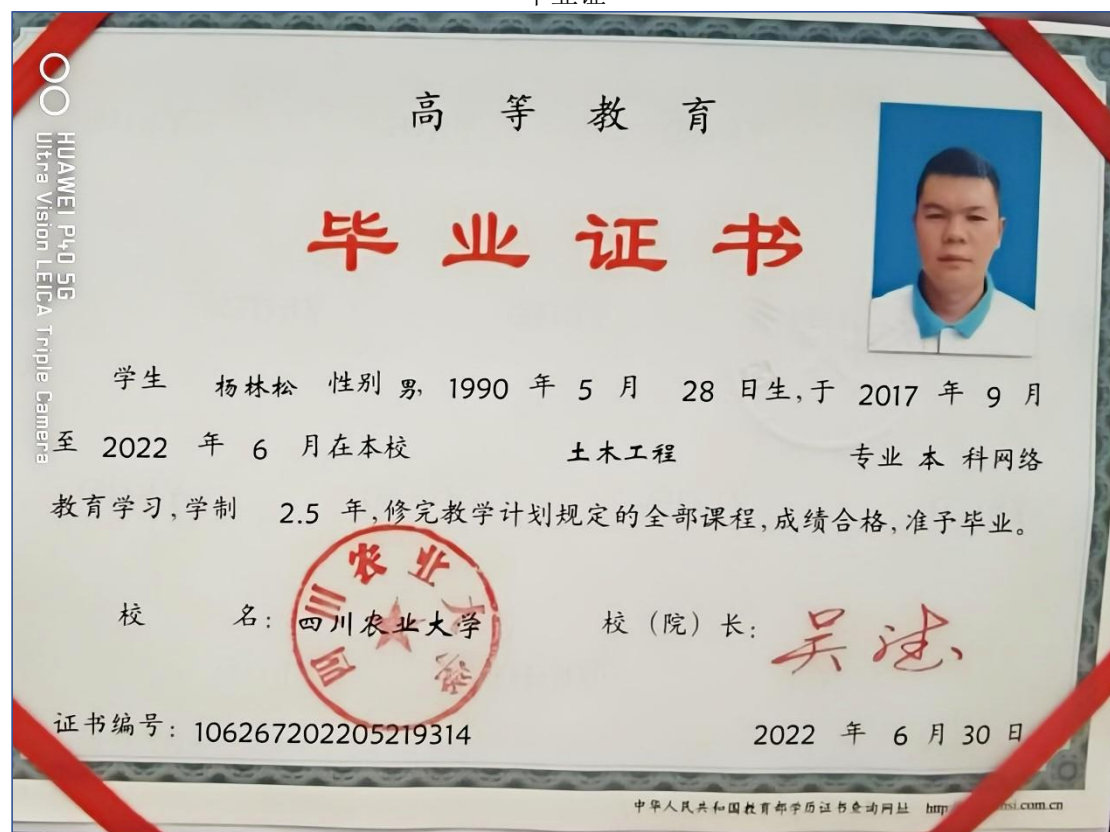 毕业证
HUAWEI P40 5G
Ultra Vision LEICA Triple Camera
高等教育
毕业证书
学生 杨林松 性别 男, 1990 年 5 月 28 日生,于 2017 年 9 月
至 2022 年 6 月在本校 土木工程 专业 本 科网络
教育学习,学制 2.5 年,修完教学计划规定的全部课程,成绩合格,准予毕业。
校 名: 四川农业大学 校(院)长: 吴德
四川农业大学
证书编号: 106267202205219314 2022 年 6 月 30 日
中华人民共和国教育部学历证书查询网址 http si.com.cn